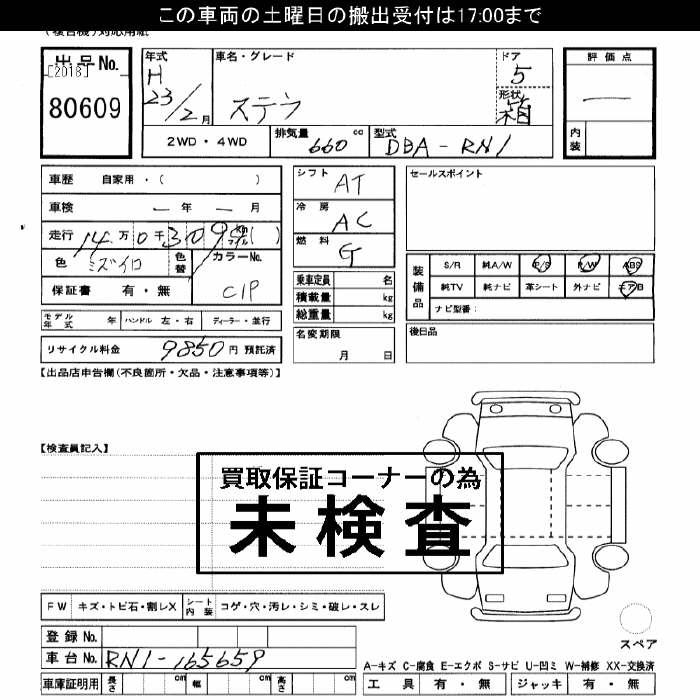 この車両の土曜日の搬出受付は17:00まで
(複合機)対応用紙
出品No.
[2018]
80609
年式
H
23/2月
車名・グレード
ステラ
ドア
5
形状
箱
評価点
―
内装
2WD・4WD
排気量
660 cc
型式
DBA-RN1
車歴 自家用・( )
車検 ― 年 ― 月
走行 14万0千309 km マイル( )
色 ミズイロ
色替
カラーNo.
C1P
保証書 有・無
シフト AT
冷房 AC
燃料 G
乗車定員 名
積載量 kg
総重量 kg
名変期限
月 日
セールスポイント
装備品
S/R 純A/W P/S P/W ABS
純TV 純ナビ 革シート 外ナビ エアB
ナビ型番:
後日品
モデル年式 年 ハンドル 左・右 ディーラー・並行
リサイクル料金 9850円 預託済
【出品店申告欄(不良箇所・欠品・注意事項等)】
【検査員記入】
買取保証コーナーの為
未検査
FW キズ・トビ石・割レX シート内装 コゲ・穴・汚レ・シミ・破レ・スレ
スペア
登録No.
車台No. RN1-165659
車庫証明用 長さ cm 幅 cm 高さ cm
A-キズ C-腐食 E-エクボ S-サビ U-凹ミ W-補修 XX-交換済
工具 有・無 ジャッキ 有・無